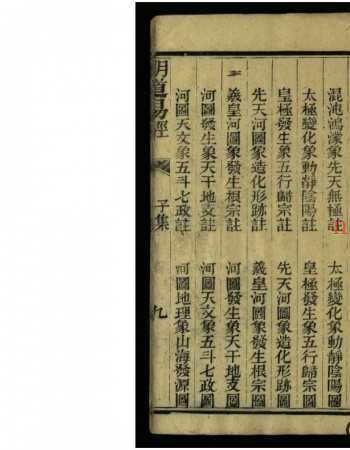 混沌鴻濛象先天無極註
太極變化象動靜陰陽圖
太極變化象動靜陰陽註
皇極發生象五行歸宗圖
皇極發生象五行歸宗註
先天河圖象造化形跡圖
先天河圖象造化形跡註
羲皇河圖象發生根宗圖
羲皇河圖象發生根宗註
河圖發生象天干地支圖
河圖發生象天干地支註
河圖天文象五斗七政圖
河圖天文象五斗七政註
河圖地理象山海發源圖
明道易經
子集
九